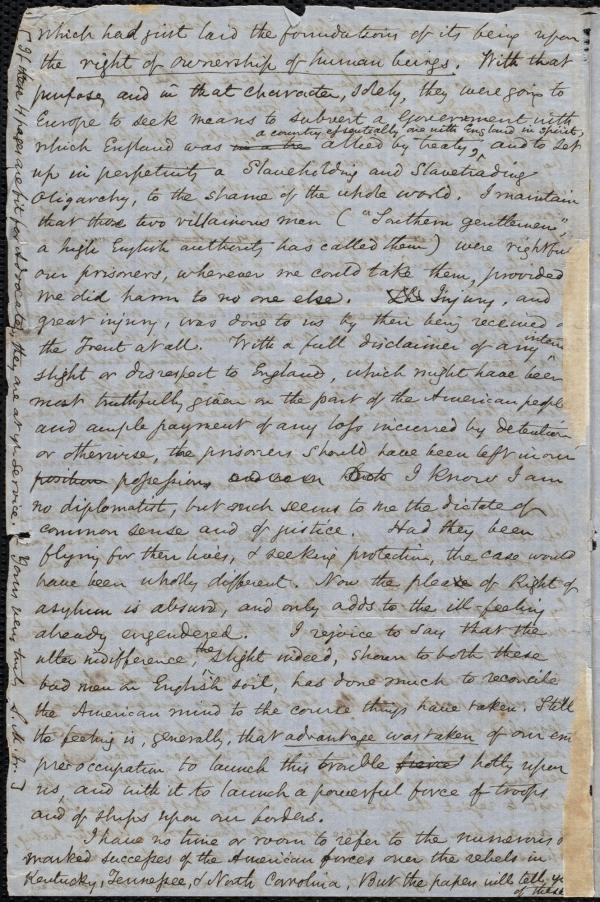 which had just laid the foundations of its being upon
the right of ownership of human beings. With that
purpose, and in that character, solely, they were going to
Europe to seek means to subvert a Government with
a country essentially one with England in spirit,
which England was allied by treaty, and to set
up in perpetuity a Slaveholding and Slavetrading
Oligarchy, to the shame of the whole world. I maintain
that those two villainous men ("Southern gentlemen",
a high English authority has called them) were rightful
our prisoners, wherever we could take them, provided
we did harm to no one else. Injury, and
great injury, was done to us by their being received
the Trent at all. With a full disclaimer of any
slight or disrespect to England, which might have been
most truthfully given on the part of the American people
and ample payment of any loss incurred by detention
or otherwise, the prisoners should have been left in our
position possession, I know I am
no diplomatist, but such seems to me the dictate of
common sense and of justice. Had they been
flying for their lives, & seeking protection, the case would
have been wholly different. Now the plea of Right of
asylum is absurd, and only adds to the ill-feeling
already engendered. I rejoice to say that the
utter indifference, the slight indeed, shown to both these
bad men on English soil, has done much to reconcile
the American mind to the course things have taken. Still
the feeling is, generally, that advantage was taken of our em
preoccupation to launch this trouble hotly upon
us, and with it to launch a powerful force of troops
and of ships upon our borders.
I have no time or room to refer to the numerous
marked successes of the American forces over the rebels in
Kentucky, Tennessee, & North Carrolina, But the papers will tell
of these
[If these 4 pages are fit for Advocate, they are at yr service.
Yours very truly S. M. Jr.]